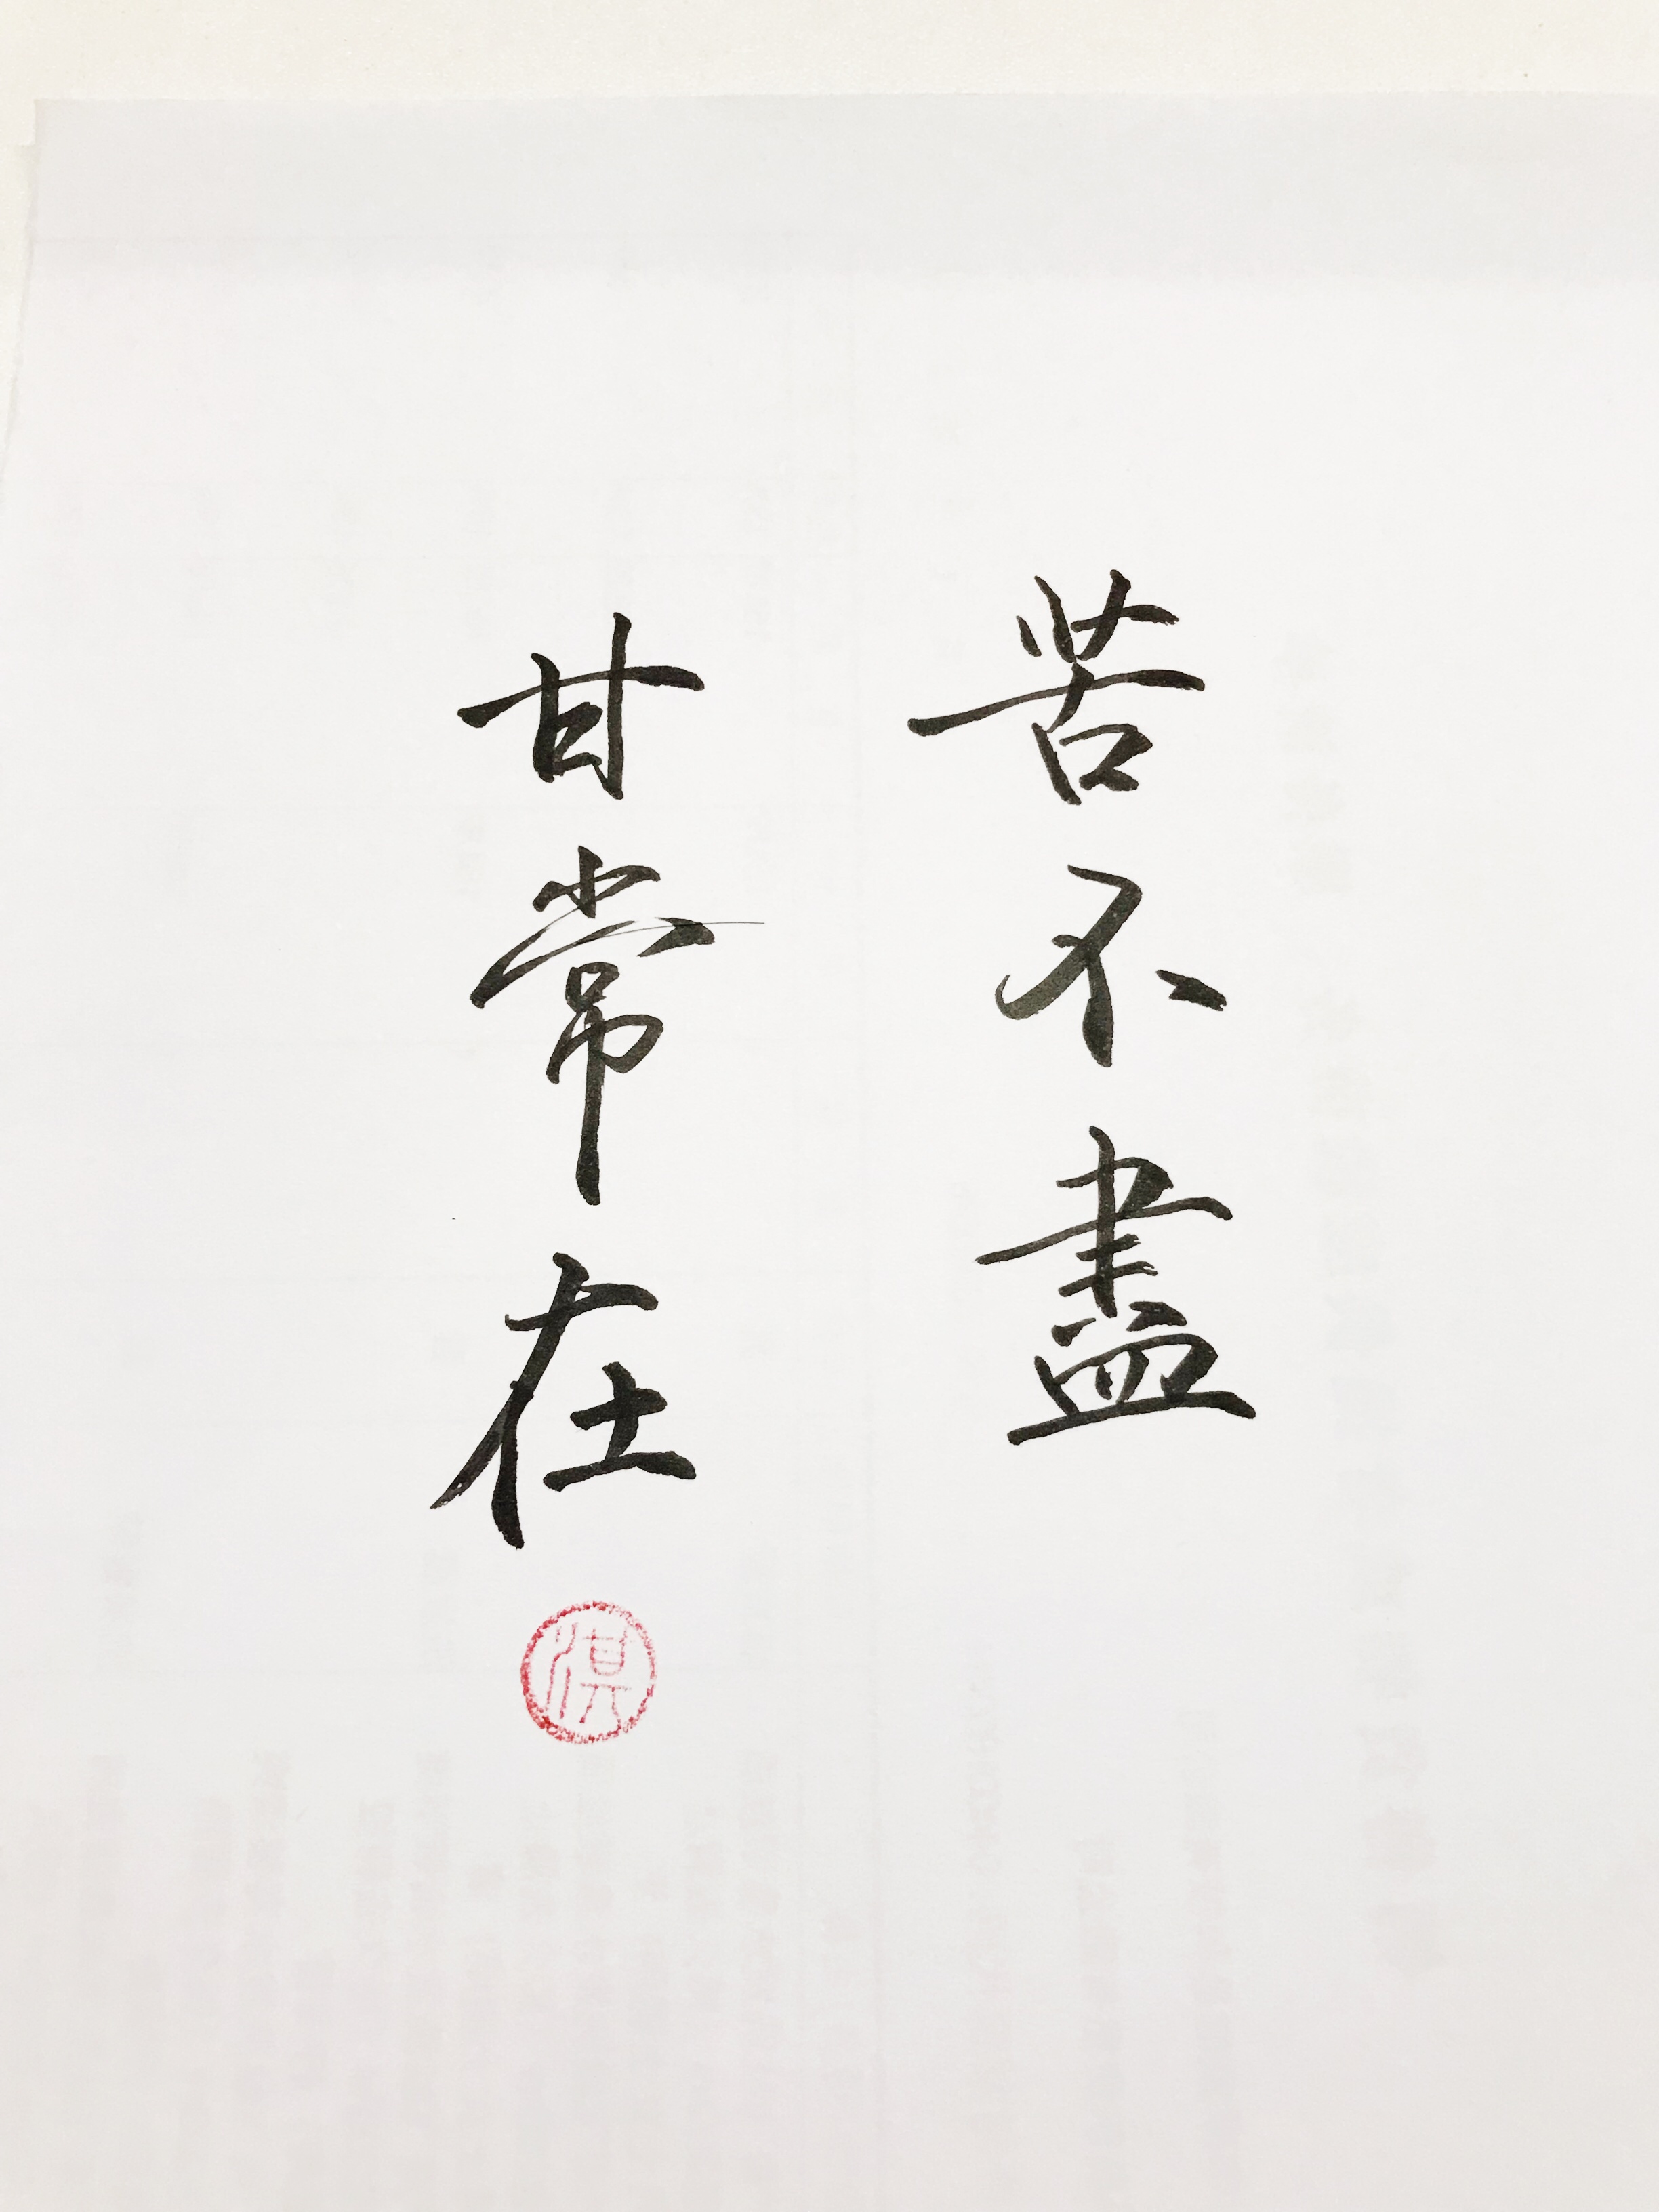 苦不盡
甘常在